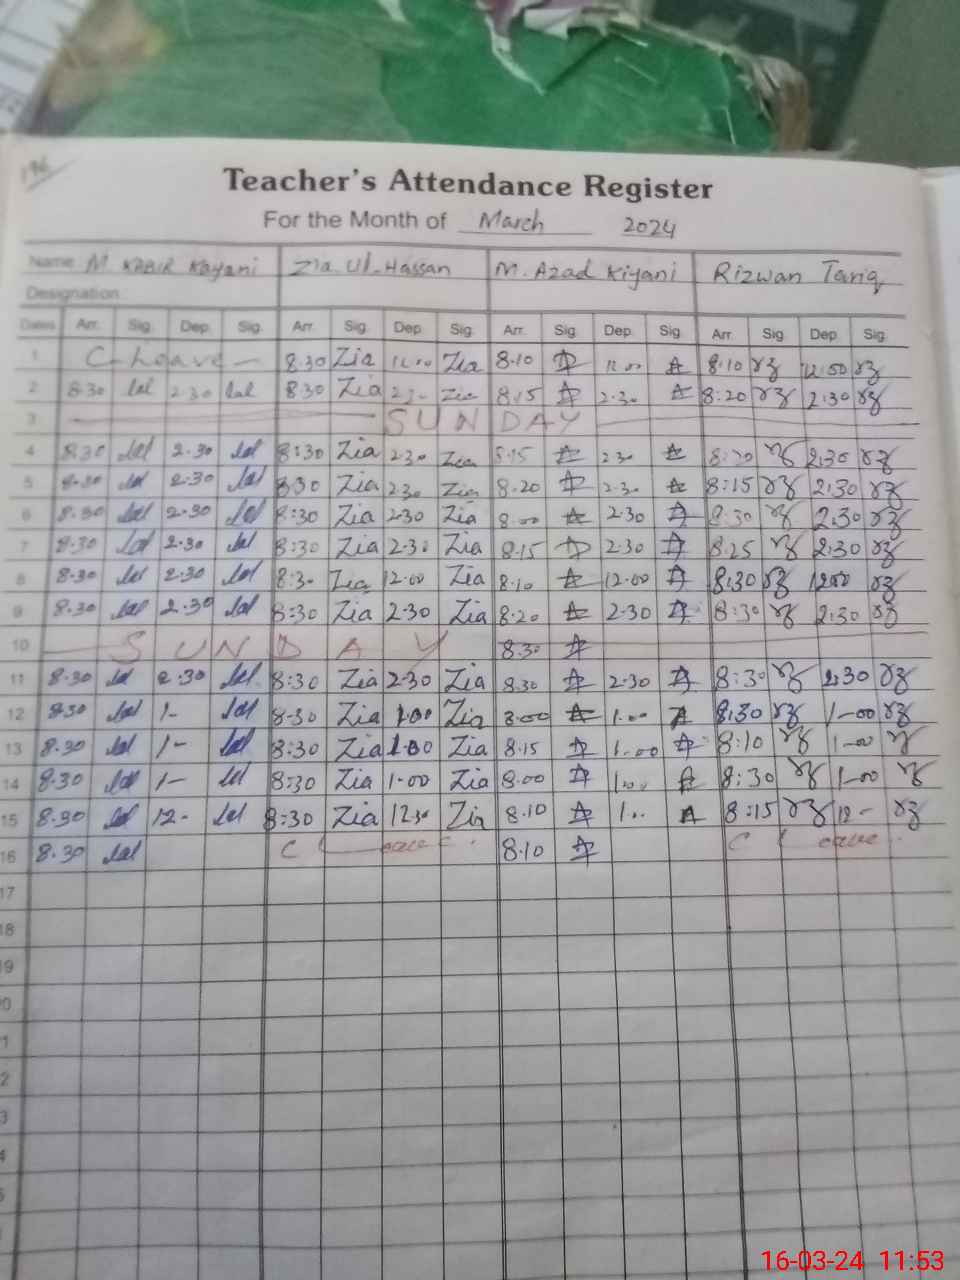 196
Teacher's Attendance Register
For the Month of March 2024
Name M. KABIR Kayani Zia Ul-Hassan M. Azad Kiyani Rizwan Tariq
Designation
Dates Arr. Sig. Dep. Sig. Arr. Sig. Dep. Sig. Arr. Sig. Dep. Sig. Arr. Sig. Dep. Sig.
1 C- Leave - 8.30 Zia 12.00 Zia 8.10 12.00 8.10 12.00
2 8.30 lal 2.30 lal 8.30 Zia 2.30 Zia 8.15 2.30 8:20 2.30
3 SUNDAY
4 8.30 lal 2.30 lal 8:30 Zia 2.30 Zia 8.15 2.30 8:20 2.30
5 8.30 lal 2.30 lal 8.30 Zia 2.30 Zia 8.20 2.30 8:15 2.30
6 8.30 lal 2.30 lal 8:30 Zia 2.30 Zia 8.00 2.30 8.30 2.30
7 8.30 lal 2.30 lal 8:30 Zia 2.30 Zia 8.15 2.30 8.25 2.30
8 8.30 lal 2.30 lal 8:30 Zia 12.00 Zia 8.10 12.00 8.30 1200
9 8.30 lal 2.30 lal 8:30 Zia 2.30 Zia 8.20 2.30 8:30 2.30
10 SUNDAY 8.30
11 8.30 lal 2.30 lal 8:30 Zia 2.30 Zia 8.30 2.30 8:30 2.30
12 8.30 lal 1- lal 8-30 Zia 1.00 Zia 8.00 1.00 8.30 1-00
13 8.30 lal 1- lal 8:30 Zia 1.00 Zia 8.15 1.00 8:10 1-00
14 8.30 lal 1- lal 8:30 Zia 1.00 Zia 8.00 1.00 8:30 1-00
15 8.30 lal 12- lal 8:30 Zia 1230 Zia 8.10 1.00 8:15 12-
16 8.30 lal C Leave 8.10 C Leave
17
18
19
20
16-03-24 11:53